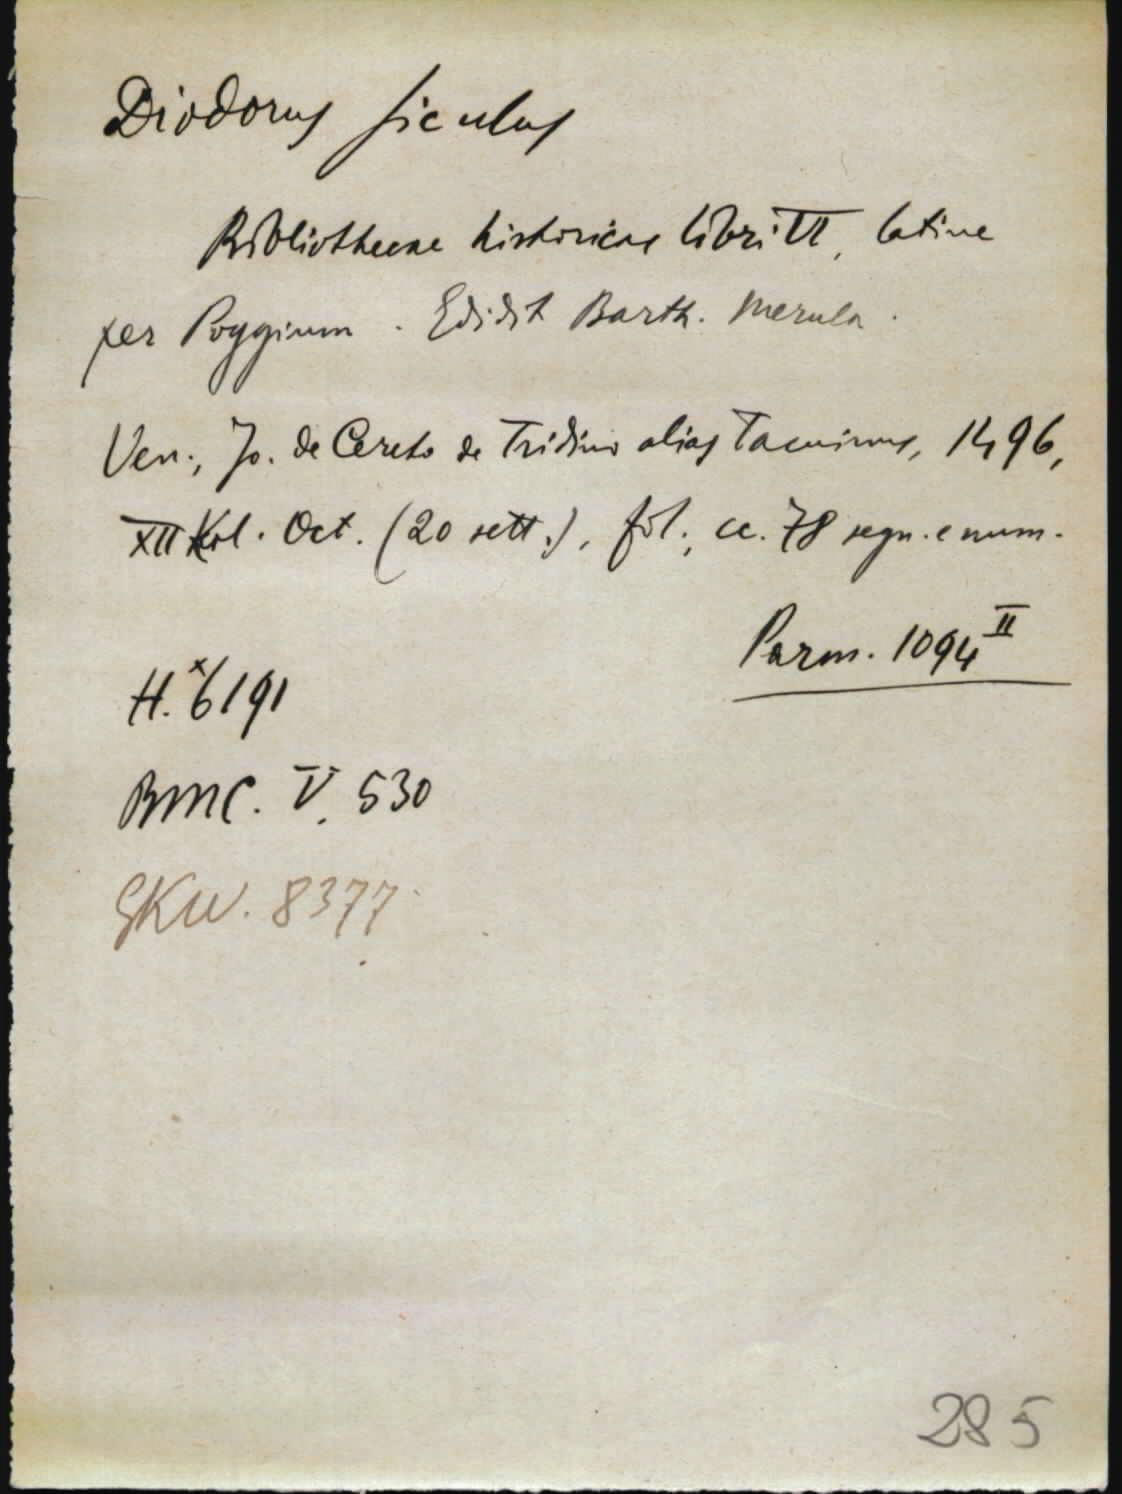 Diodorus Siculus
Bibliothecae historicae libri VI, latine
per Poggium. Edidit Barth. Merula.
Ven., Jo. de Cereto de Tridino alias Tacuinus, 1496,
XII Kal. Oct. (20 sett.), fol., cc. 78 segn. e num.
Parm. 1094 II
H.x6191
BMC. V. 530
GKW. 8377
285